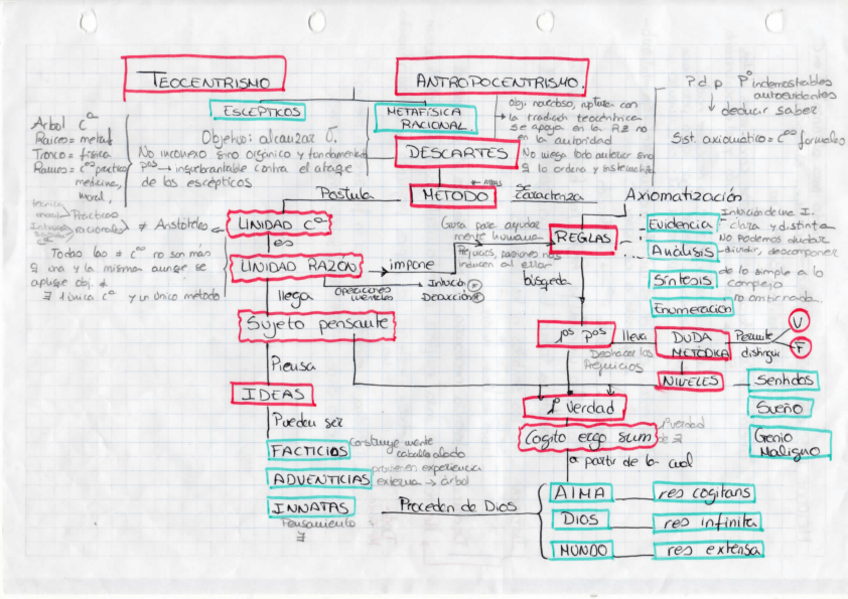 TEOCENTRISMO
ANTROPOCENTRISMO.
ESCÉPTICOS
METAFÍSICA
RACIONAL.
Obj. novedoso, ruptura con
la tradición teocéntrica
se apoya en la RZ no
en la autoridad
P d p pº indemostrables
autoevidentes
deducir saber
Sist. axiomático = Cºº formales
Árbol Cª
Raíces = metaf
Tronco = física
Ramas = Cºº practica
medicina,
moral,
Objetivo: alcanzar V.
No inconexo sino orgánico y fundamentado
pºs → inquebrantable contra el ataque
de los escépticos
DESCARTES
No niega todo anterior sino
q lo ordena y sistematiza
Postula
MÉTODO
se
caracteriza
Axiomatización
Prácticos
racionales
≠ Aristóteles
UNIDAD Cª
es
Todas las ≠ Cºº no son más
q una y la misma aunque se
aplique obj. ≠
∃ 1 única Cª y un único método
UNIDAD RAZÓN
impone
operaciones
mentales
Intuició
Deducción
Guia para ayudar
mente humana
Prejuicios, pasiones nos
inducen al error
REGLAS
búsqueda
Evidencia
Intuición de una I.
clara y distinta
No podemos dudar
Análisis
dividir, descomponer
Síntesis
de lo simple a lo
complejo
Enumeración
no omitir nada.
llega
Sujeto pensante
1ºs pºs
lleva
DUDA
METÓDICA
Permite
distinguir
V
F
Deshacer los
Prejuicios
NIVELES
Sentidos
Sueño
Genio
Maligno
Piensa
IDEAS
Pueden ser
1ª Verdad
Cogito ergo sum
1ª verdad
de ∃
a partir de la cual
FACTICIAS
construye mente
caballo alado
ADVENTICIAS
provienen experiencia
externa → árbol
INNATAS
Pensamiento
∃
Proceden de Dios
ALMA
res cogitans
DIOS
res infinita
MUNDO
res extensa